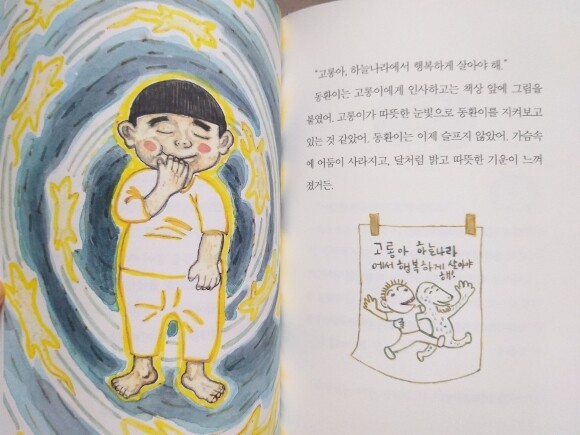 “고롱아, 하늘나라에서 행복하게 살아야 해.”
동환이는 고롱이에게 인사하고는 책상 앞에 그림을
붙였어. 고롱이가 따뜻한 눈빛으로 동환이를 지켜보고
있는 것 같았어. 동환이는 이제 슬프지 않았어. 가슴속
에 어둠이 사라지고, 달처럼 밝고 따뜻한 기운이 느껴
졌거든.
고롱아 하늘나라
에서 행복하게 살아야
해!